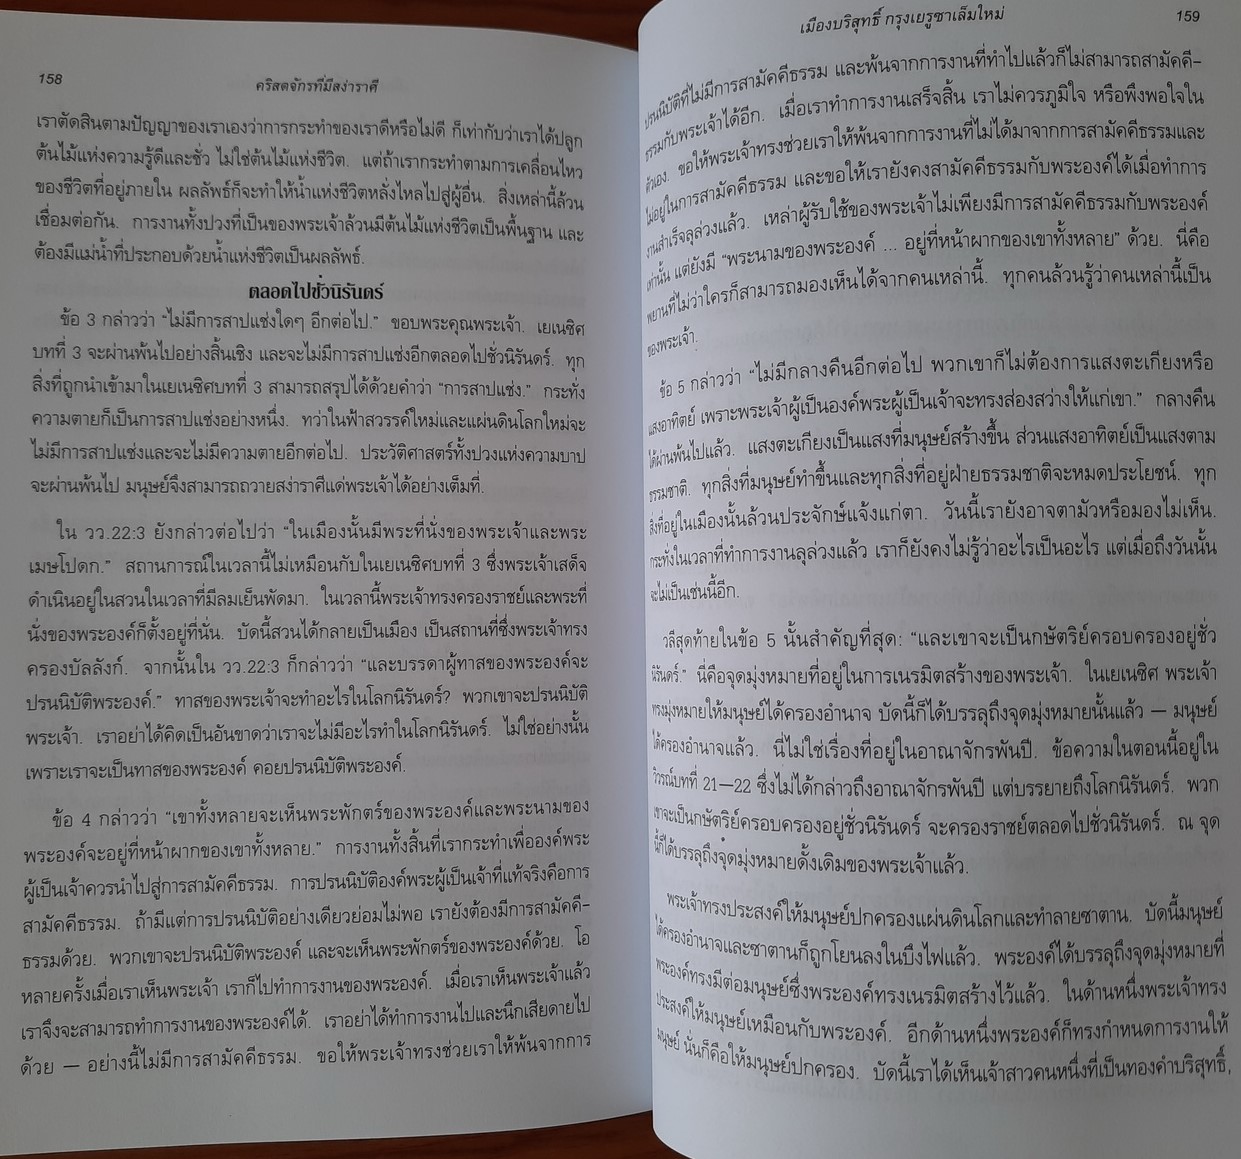 158
คริสตจักรที่มีสง่าราศี
เราตัดสินตามปัญญาของเราเองว่าการกระทำของเราดีหรือไม่ดี ก็เท่ากับว่าเราได้ปลูก
ต้นไม้แห่งความรู้ดีและชั่ว ไม่ใช่ต้นไม้แห่งชีวิต. แต่ถ้าเรากระทำตามการเคลื่อนไหว
ของชีวิตที่อยู่ภายใน ผลลัพธ์ก็จะทำให้น้ำแห่งชีวิตหลั่งไหลไปสู่ผู้อื่น. สิ่งเหล่านี้ล้วน
เชื่อมต่อกัน. การงานทั้งปวงที่เป็นของพระเจ้าล้วนมีต้นไม้แห่งชีวิตเป็นพื้นฐาน และ
ต้องมีแม่น้ำที่ประกอบด้วยน้ำแห่งชีวิตเป็นผลลัพธ์.
ตลอดไปชั่วนิรันดร์
ข้อ 3 กล่าวว่า “ไม่มีการสาปแช่งใดๆ อีกต่อไป.” ขอบพระคุณพระเจ้า. เยเนซิศ
บทที่ 3 จะผ่านพ้นไปอย่างสิ้นเชิง และจะไม่มีการสาปแช่งอีกตลอดไปชั่วนิรันดร์. ทุก
สิ่งที่ถูกนำเข้ามาในเยเนซิศบทที่ 3 สามารถสรุปได้ด้วยคำว่า “การสาปแช่ง.” กระทั่ง
ความตายก็เป็นการสาปแช่งอย่างหนึ่ง. ทว่าในฟ้าสวรรค์ใหม่และแผ่นดินโลกใหม่จะ
ไม่มีการสาปแช่งและจะไม่มีความตายอีกต่อไป. ประวัติศาสตร์ทั้งปวงแห่งความบาป
จะผ่านพ้นไป มนุษย์จึงสามารถถวายสง่าราศีแด่พระเจ้าได้อย่างเต็มที่.
ใน วว.22:3 ยังกล่าวต่อไปว่า “ในเมืองนั้นมีพระที่นั่งของพระเจ้าและพระ
เมษโปดก.” สถานการณ์ในเวลานี้ไม่เหมือนกับในเยเนซิศบทที่ 3 ซึ่งพระเจ้าเสด็จ
ดำเนินอยู่ในสวนในเวลาที่มีลมเย็นพัดมา. ในเวลานี้พระเจ้าทรงครองราชย์และพระที่
นั่งของพระองค์ก็ตั้งอยู่ที่นั่น. บัดนี้สวนได้กลายเป็นเมือง เป็นสถานที่ซึ่งพระเจ้าทรง
ครองบัลลังก์. จากนั้นใน วว.22:3 ก็กล่าวว่า “และบรรดาผู้ทาสของพระองค์จะ
ปรนนิบัติพระองค์.” ทาสของพระเจ้าจะทำอะไรในโลกนิรันดร์? พวกเขาจะปรนนิบัติ
พระเจ้า. เราอย่าได้คิดเป็นอันขาดว่าเราจะไม่มีอะไรทำในโลกนิรันดร์. ไม่ใช่อย่างนั้น
เพราะเราจะเป็นทาสของพระองค์ คอยปรนนิบัติพระองค์.
ข้อ 4 กล่าวว่า “เขาทั้งหลายจะเห็นพระพักตร์ของพระองค์และพระนามของ
พระองค์จะอยู่ที่หน้าผากของเขาทั้งหลาย.” การงานทั้งสิ้นที่เรากระทำเพื่อองค์พระ
ผู้เป็นเจ้าควรนำไปสู่การสามัคคีธรรม. การปรนนิบัติองค์พระผู้เป็นเจ้าที่แท้จริงคือการ
สามัคคีธรรม. ถ้ามีแต่การปรนนิบัติอย่างเดียวย่อมไม่พอ เรายังต้องมีการสามัคคี-
ธรรมด้วย. พวกเขาจะปรนนิบัติพระองค์ และจะเห็นพระพักตร์ของพระองค์ด้วย. โอ
หลายครั้งเมื่อเราเห็นพระเจ้า เราก็ไปทำการงานของพระองค์. เมื่อเราเห็นพระเจ้าแล้ว
เราจึงจะสามารถทำการงานของพระองค์ได้. เราอย่าได้ทำการงานไปและนึกเสียดายไป
ด้วย — อย่างนี้ไม่มีการสามัคคีธรรม. ขอให้พระเจ้าทรงช่วยเราให้พ้นจากการ
เมืองบริสุทธิ์ กรุงเยรูซาเล็มใหม่
159
ปรนนิบัติที่ไม่มีการสามัคคีธรรม และพ้นจากการงานที่ทำไปแล้วก็ไม่สามารถสามัคคี-
ธรรมกับพระเจ้าได้อีก. เมื่อเราทำการงานเสร็จสิ้น เราไม่ควรภูมิใจ หรือพึงพอใจใน
ตัวเอง. ขอให้พระเจ้าทรงช่วยเราให้พ้นจากการงานที่ไม่ได้มาจากการสามัคคีธรรมและ
ไม่อยู่ในการสามัคคีธรรม และขอให้เรายังคงสามัคคีธรรมกับพระองค์ได้เมื่อทำการ
งานสำเร็จลุล่วงแล้ว. เหล่าผู้รับใช้ของพระเจ้าไม่เพียงมีการสามัคคีธรรมกับพระองค์
เท่านั้น แต่ยังมี “พระนามของพระองค์ ... อยู่ที่หน้าผากของเขาทั้งหลาย” ด้วย. นี่คือ
พยานที่ไม่ว่าใครก็สามารถมองเห็นได้จากคนเหล่านี้. ทุกคนล้วนรู้ว่าคนเหล่านี้เป็น
ของพระเจ้า.
ข้อ 5 กล่าวว่า “ไม่มีกลางคืนอีกต่อไป พวกเขาก็ไม่ต้องการแสงตะเกียงหรือ
แสงอาทิตย์ เพราะพระเจ้าผู้เป็นองค์พระผู้เป็นเจ้าจะทรงส่องสว่างให้แก่เขา.” กลางคืน
ได้ผ่านพ้นไปแล้ว. แสงตะเกียงเป็นแสงที่มนุษย์สร้างขึ้น ส่วนแสงอาทิตย์เป็นแสงตาม
ธรรมชาติ. ทุกสิ่งที่มนุษย์ทำขึ้นและทุกสิ่งที่อยู่ฝ่ายธรรมชาติจะหมดประโยชน์. ทุก
สิ่งที่อยู่ในเมืองนั้นล้วนประจักษ์แจ้งแก่ตา. วันนี้เรายังอาจตามัวหรือมองไม่เห็น.
กระทั่งในเวลาที่ทำการงานลุล่วงแล้ว เราก็ยังคงไม่รู้ว่าอะไรเป็นอะไร แต่เมื่อถึงวันนั้น
จะไม่เป็นเช่นนี้อีก.
วลีสุดท้ายในข้อ 5 นั้นสำคัญที่สุด: “และเขาจะเป็นกษัตริย์ครอบครองอยู่ชั่ว
นิรันดร์.” นี่คือจุดมุ่งหมายที่อยู่ในการเนรมิตสร้างของพระเจ้า. ในเยเนซิศ พระเจ้า
ทรงมุ่งหมายให้มนุษย์ได้ครองอำนาจ บัดนี้ก็ได้บรรลุถึงจุดมุ่งหมายนั้นแล้ว — มนุษย์
ได้ครองอำนาจแล้ว. นี่ไม่ใช่เรื่องที่อยู่ในอาณาจักรพันปี. ข้อความในตอนนี้อยู่ใน
วิวรณ์บทที่ 21—22 ซึ่งไม่ได้กล่าวถึงอาณาจักรพันปี แต่บรรยายถึงโลกนิรันดร์. พวก
เขาจะเป็นกษัตริย์ครอบครองอยู่ชั่วนิรันดร์ จะครองราชย์ตลอดไปชั่วนิรันดร์. ณ จุด
นี้ก็ได้บรรลุถึงจุดมุ่งหมายดั้งเดิมของพระเจ้าแล้ว.
พระเจ้าทรงประสงค์ให้มนุษย์ปกครองแผ่นดินโลกและทำลายซาตาน. บัดนี้มนุษย์
ได้ครองอำนาจและซาตานก็ถูกโยนลงในบึงไฟแล้ว. พระองค์ได้บรรลุถึงจุดมุ่งหมายที่
พระองค์ทรงมีต่อมนุษย์ซึ่งพระองค์ทรงเนรมิตสร้างไว้แล้ว. ในด้านหนึ่งพระเจ้าทรง
ประสงค์ให้มนุษย์เหมือนกับพระองค์. อีกด้านหนึ่งพระองค์ก็ทรงกำหนดการงานให้
มนุษย์ นั่นก็คือให้มนุษย์ปกครอง. บัดนี้เราได้เห็นเจ้าสาวคนหนึ่งที่เป็นทองคำบริสุทธิ์,